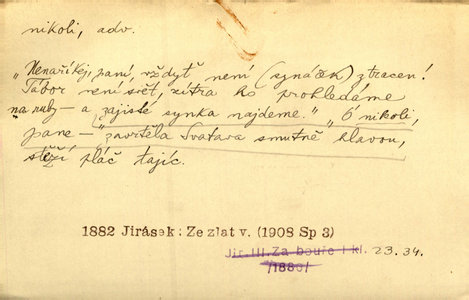 nikoli, adv.
„Nenaříkej, paní, vždyť není (synáček) ztracen!
Tábor není svět, zítra ho prohledáme
na ruby – a zajisté synka najdeme.“ „Ó nikoli,
pane –“ zavrtěla Svatava smutně hlavou,
stěží pláč tajíc.
1882 Jirásek: Ze zlat v. (1908 Sp 3)
Jir. III. Za bouře I kl. 23.34.
/1880/